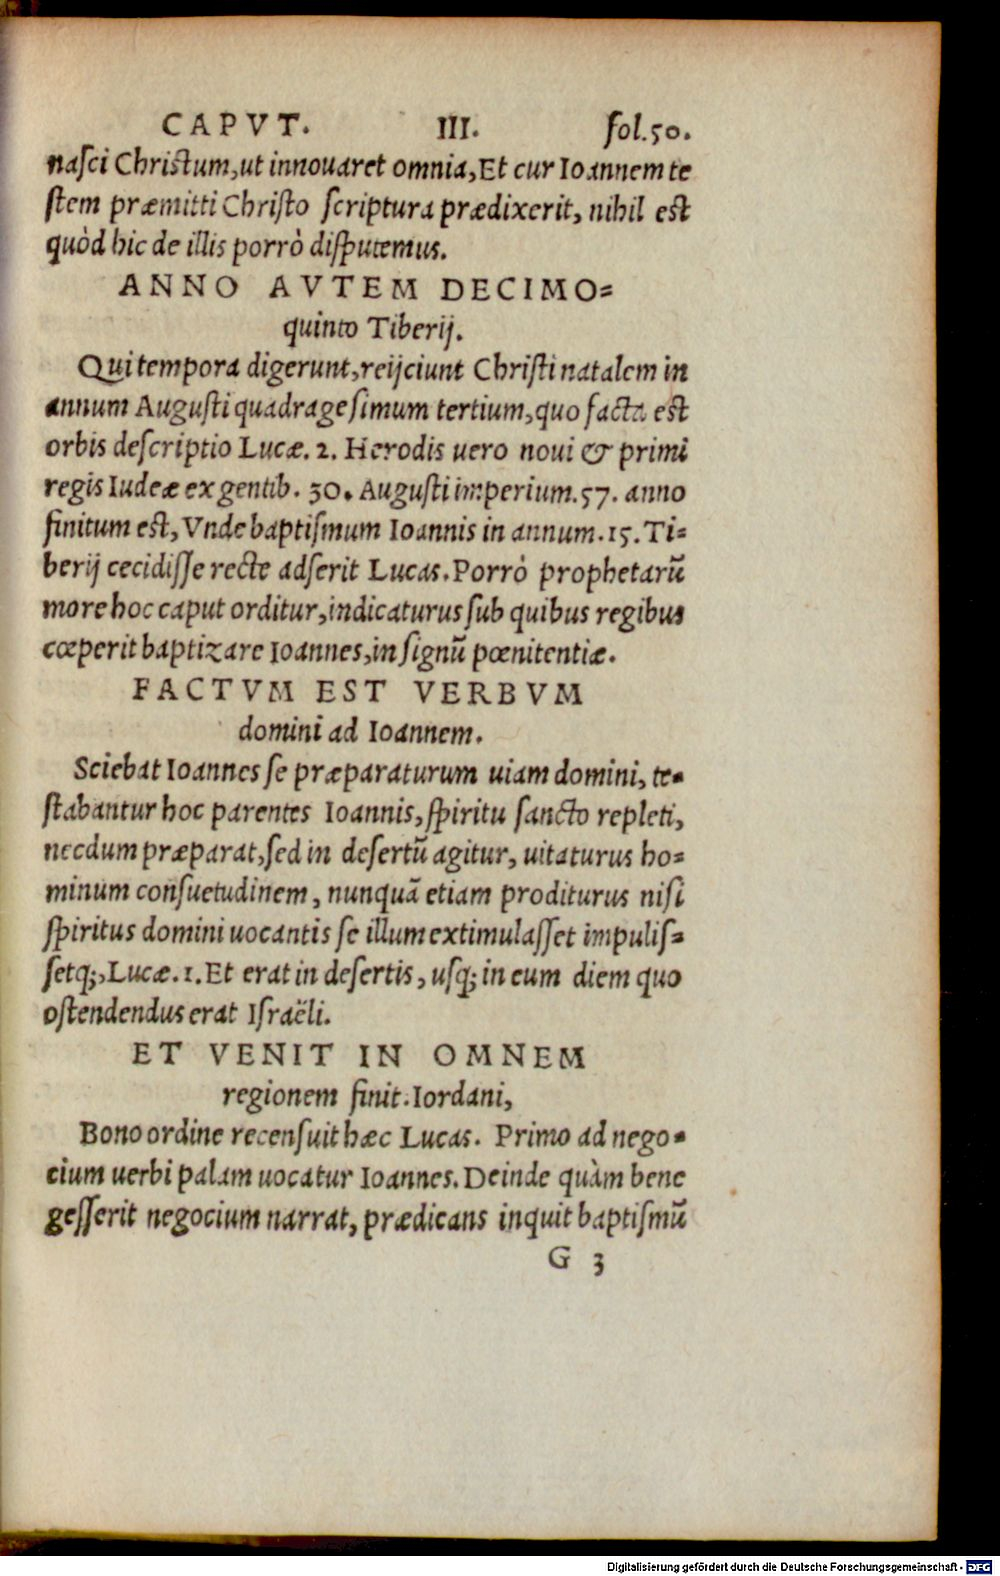 CAPVT. III. fol.50.
naſci Chriſtum,ut innouaret omnia,Et cur Ioannem te
ſtem præmitti Chriſto ſcriptura prædixerit, nihil eſt
quòd hic de illis porrò diſputemus.
ANNO AVTEM DECIMO=
quinto Tiberij.
Qui tempora digerunt,reijciunt Chriſti natalem in
annum Auguſti quadrageſimum tertium,quo facta eſt
orbis deſcriptio Lucæ. 2. Herodis uero noui & primi
regis Iudeæ ex gentib. 30. Auguſti imperium.57. anno
finitum eſt, Vnde baptiſmum Ioannis in annum.15. Ti=
berij cecidiſſe recte adſerit Lucas. Porrò prophetarũ
more hoc caput orditur,indicaturus ſub quibus regibus
cœperit baptizare Ioannes,in ſignũ pœnitentiæ.
FACTVM EST VERBVM
domini ad Ioannem.
Sciebat Ioannes ſe præparaturum uiam domini, te=
ſtabantur hoc parentes Ioannis, ſpiritu ſancto repleti,
necdum præparat,ſed in deſertũ agitur, uitaturus ho=
minum conſuetudinem, nunquã etiam proditurus niſi
ſpiritus domini uocantis ſe illum extimulaſſet impuliſ=
ſetq;, Lucæ.1. Et erat in deſertis, uſq; in eum diem quo
oſtendendus erat Iſraëli.
ET VENIT IN OMNEM
regionem finit. Iordani,
Bono ordine recenſuit hæc Lucas. Primo ad nego=
cium uerbi palam uocatur Ioannes. Deinde quàm bene
geſſerit negocium narrat, prædicans inquit baptiſmũ
G 3
Digitalisierung gefördert durch die Deutsche Forschungsgemeinschaft - DFG